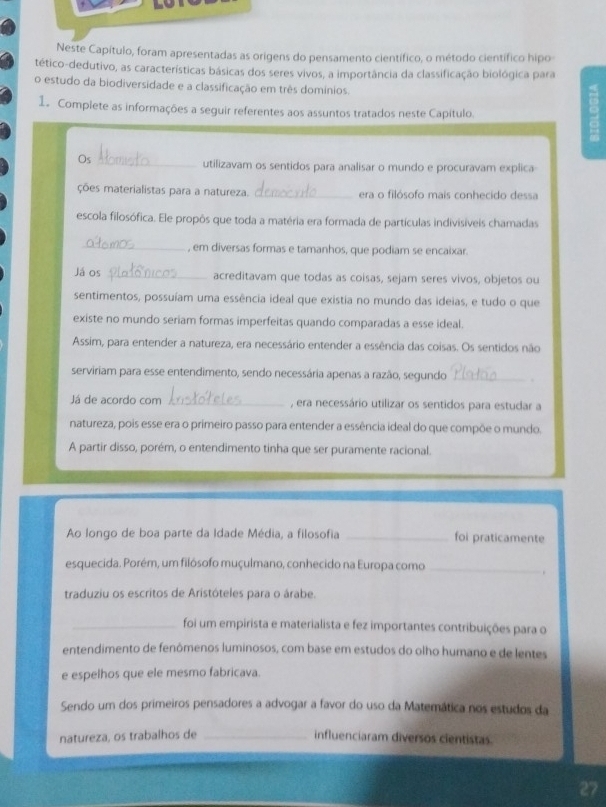 Neste Capítulo, foram apresentadas as origens do pensamento científico, o método científico hipo-
tético-dedutivo, as características básicas dos seres vivos, a importância da classificação biológica para
o estudo da biodiversidade e a classificação em três domínios.
1. Complete as informações a seguir referentes aos assuntos tratados neste Capítulo.
BIOLOGIA
Os Atomista utilizavam os sentidos para analisar o mundo e procuravam explica-
ções materialistas para a natureza. demócrito era o filósofo mais conhecido dessa
escola filosófica. Ele propôs que toda a matéria era formada de partículas indivisíveis chamadas
atomos, em diversas formas e tamanhos, que podiam se encaixar.
Já os platônicos acreditavam que todas as coisas, sejam seres vivos, objetos ou
sentimentos, possuíam uma essência ideal que existia no mundo das ideias, e tudo o que
existe no mundo seriam formas imperfeitas quando comparadas a esse ideal.
Assim, para entender a natureza, era necessário entender a essência das coisas. Os sentidos não
serviriam para esse entendimento, sendo necessária apenas a razão, segundo Platão.
Já de acordo com Aristóteles, era necessário utilizar os sentidos para estudar a
natureza, pois esse era o primeiro passo para entender a essência ideal do que compõe o mundo.
A partir disso, porém, o entendimento tinha que ser puramente racional.
Ao longo de boa parte da Idade Média, a filosofia ____________ foi praticamente
esquecida. Porém, um filósofo muçulmano, conhecido na Europa como ____________,
traduziu os escritos de Aristóteles para o árabe.
____________ foi um empirista e materialista e fez importantes contribuições para o
entendimento de fenômenos luminosos, com base em estudos do olho humano e de lentes
e espelhos que ele mesmo fabricava.
Sendo um dos primeiros pensadores a advogar a favor do uso da Matemática nos estudos da
natureza, os trabalhos de ____________ influenciaram diversos cientistas.
27